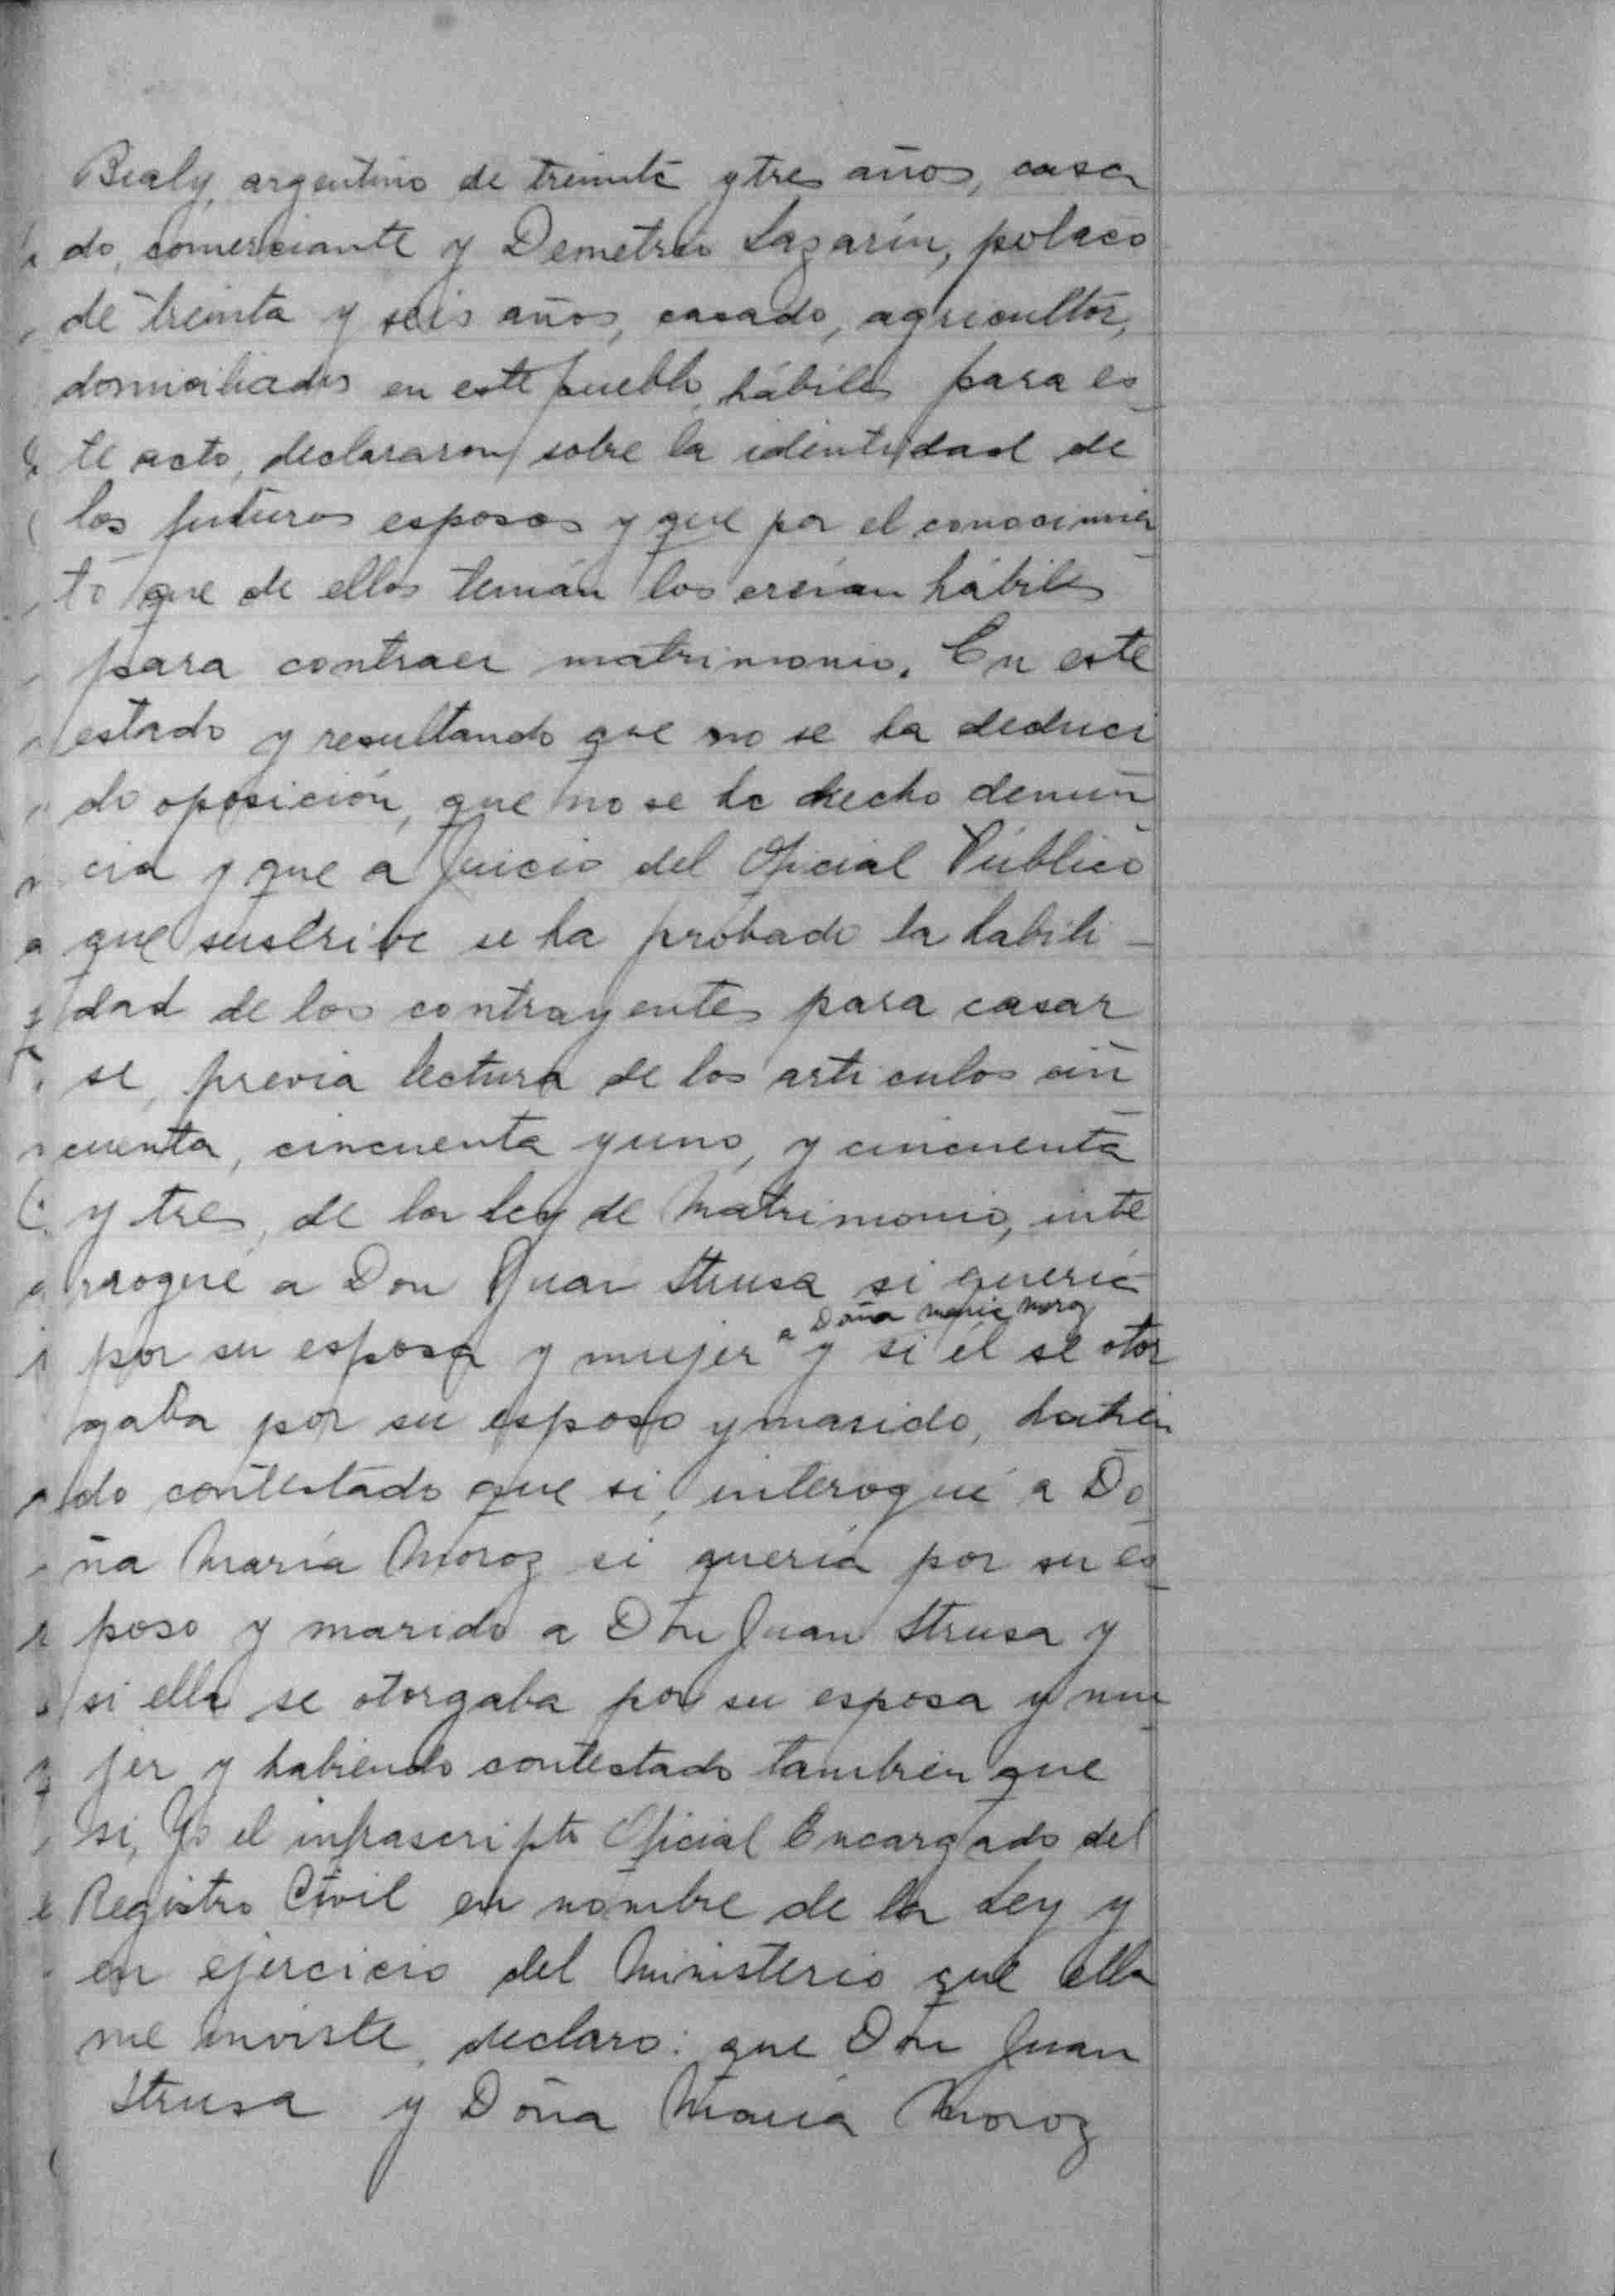 Bialy, argentino de treinta y tres años, casa
do, comerciante y Demetrio Lazarín, polaco
de treinta y seis años, casado, agricultor,
domiciliados en este pueblo, hábiles para es
te acto, declararon sobre la identidad de
los futuros esposos y que por el conocimien
to que de ellos tenían los creían hábiles
para contraer matrimonio. En este
estado y resultando que no se ha deduci
do oposición, que no se ha hecho denun
cia y que a Juicio del Oficial Público
que suscribe se ha probado la habili-
dad de los contrayentes para casar
se, previa lectura de los artículos cin
cuenta, cincuenta y uno, y cincuenta
y tres, de la ley de Matrimonio, inte
rrogué a Don Juan Strusa si quería
por su esposa y mujer a Doña María Moroz y si él se otor
gaba por su esposo y marido, habien
do contestado que si, interogué a Do
ña María Moroz si quería por su es
poso y marido a Don Juan Strusa y
si ella se otorgaba por su esposa y mu
jer y habiendo contestado también que
si, Yo el infrascripto Oficial Encargado del
Registro Civil en nombre de la Ley y
en ejercicio del Ministerio que ella
me inviste, declaro: que Don Juan
Strusa y Doña María Moroz